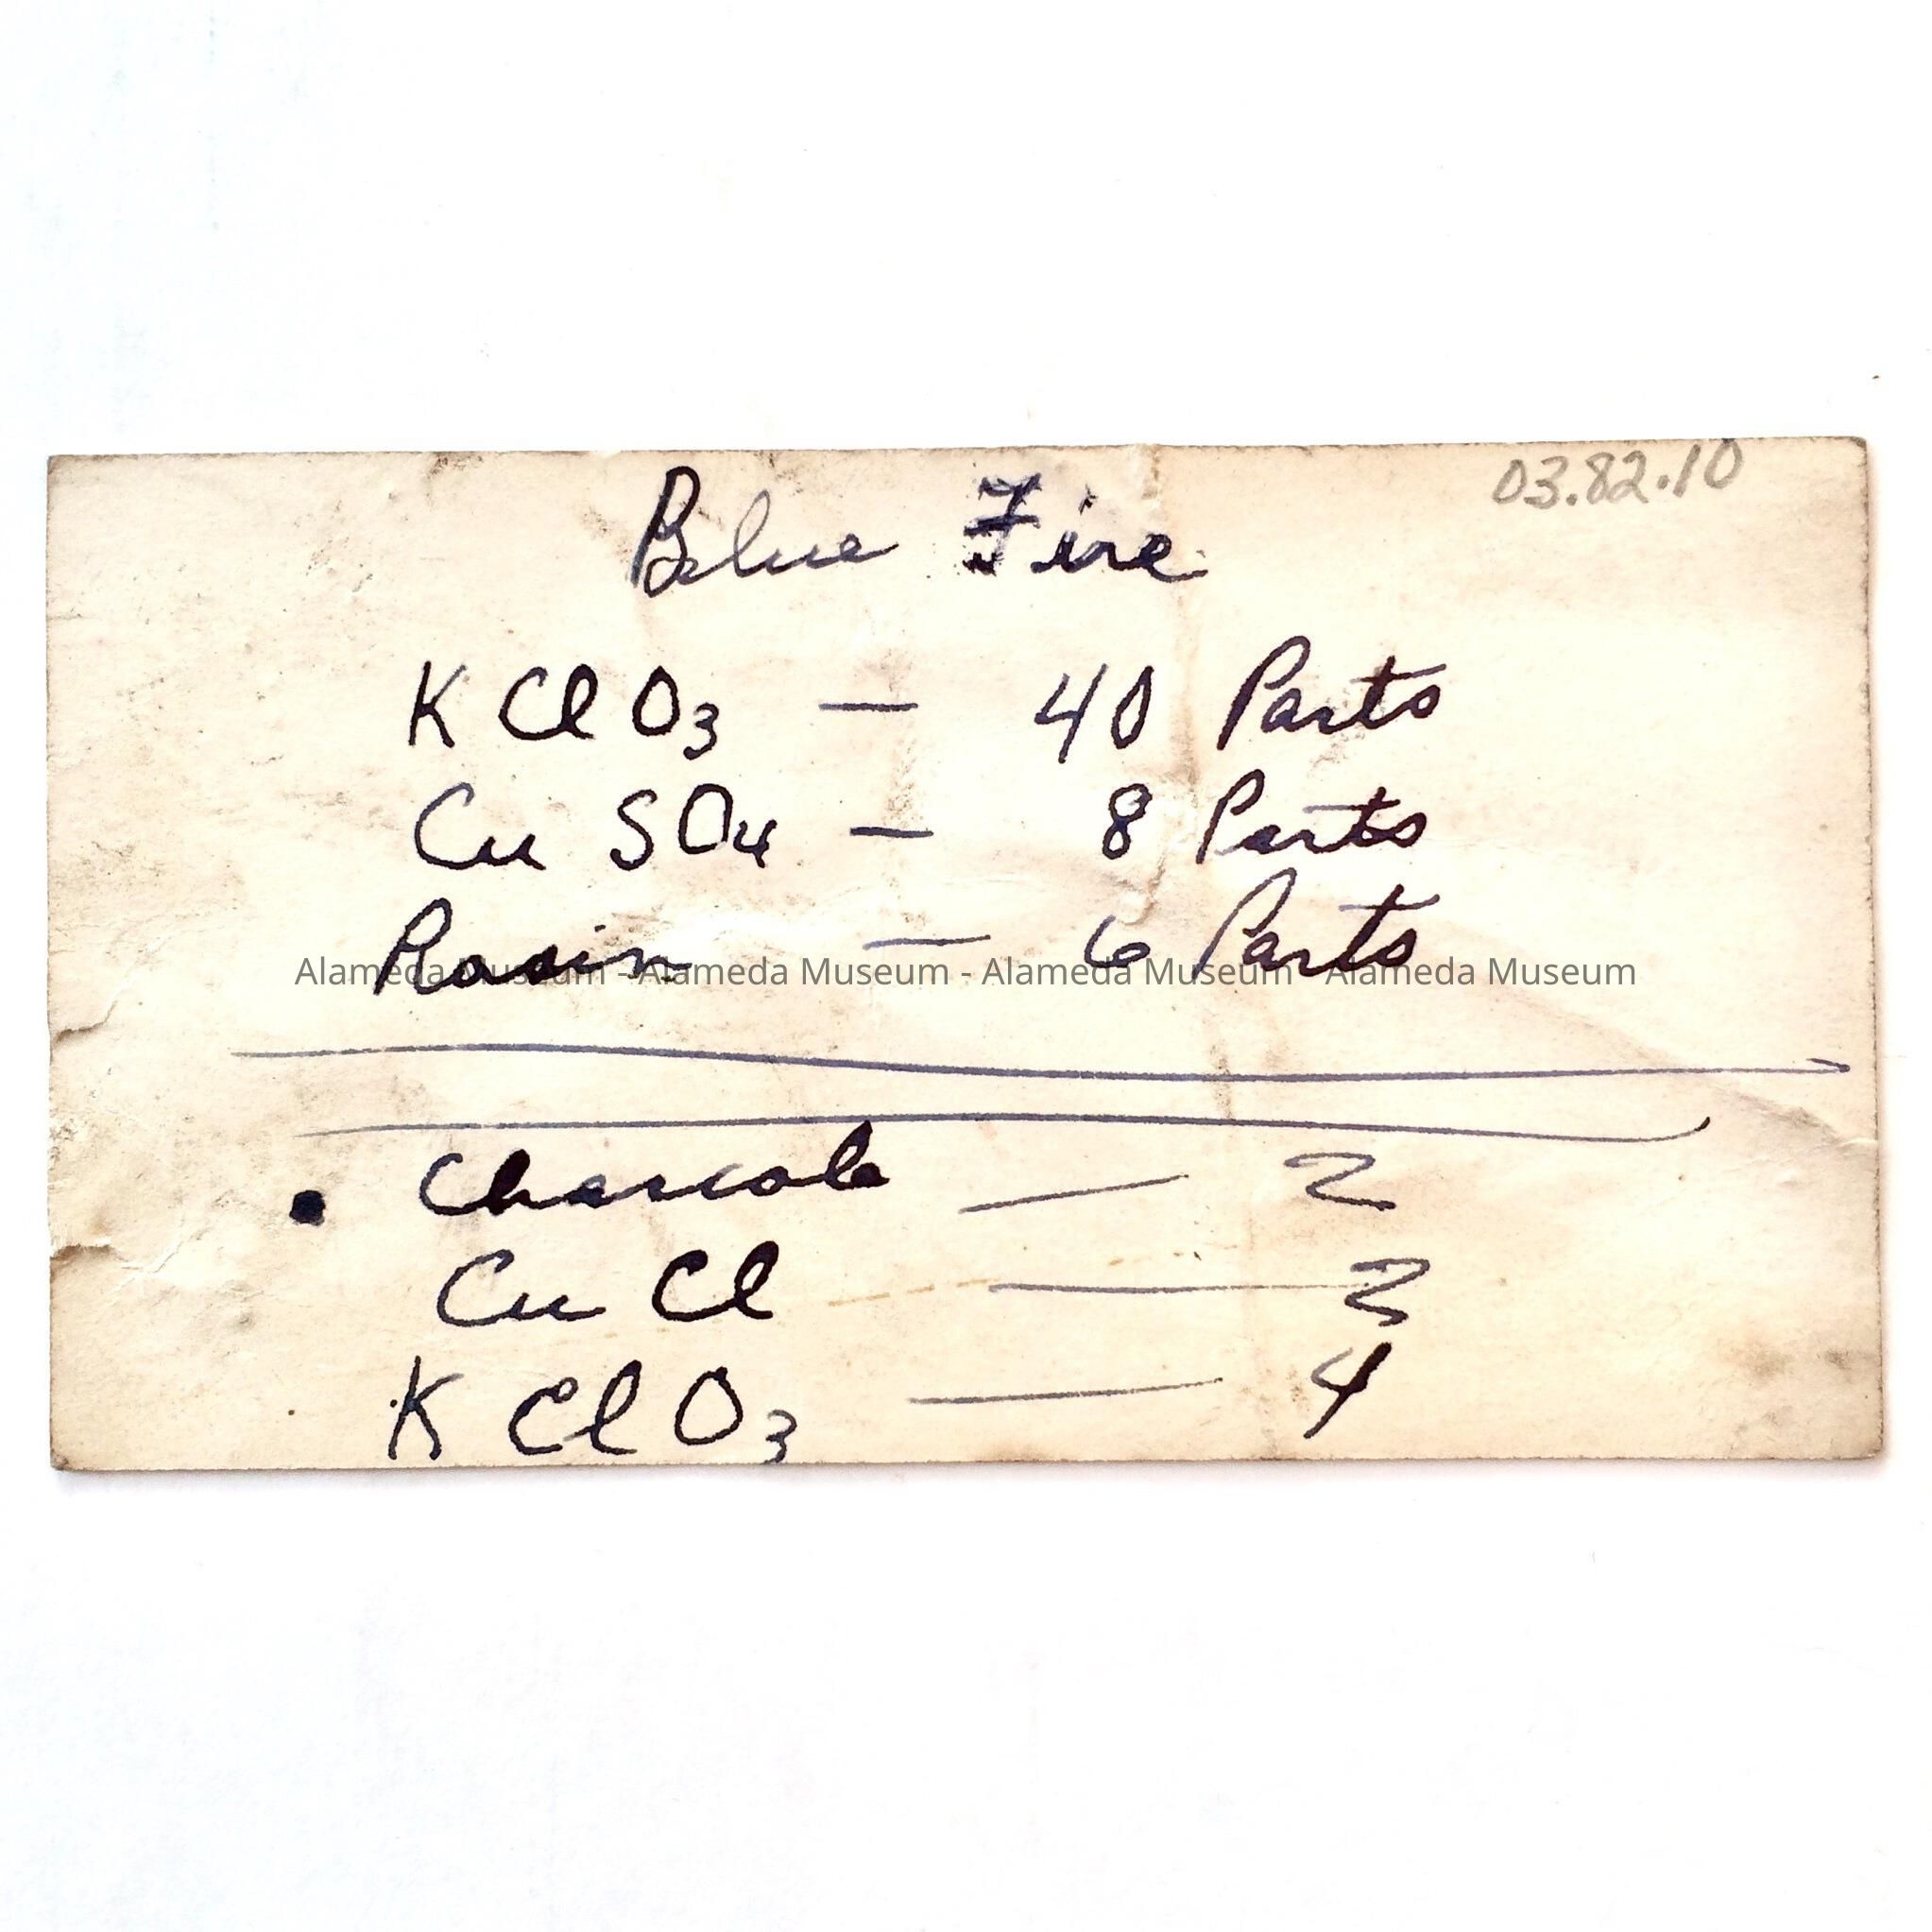 03.82.10
Blue Fire
KClO3 — 40 Parts
CuSO4 — 8 Parts
Rosin — 6 Parts
Alameda Museum - Alameda Museum - Alameda Museum - Alameda Museum
• Charcole — 2
CuCl — 2
KClO3 — 4